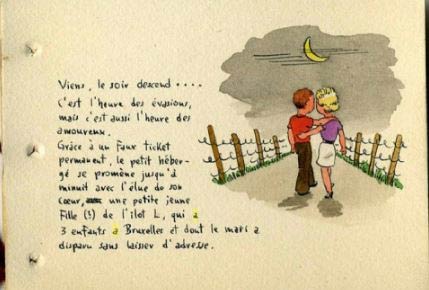 Viens, le soir descend ....
C'est l'heure des évasions,
mais c'est aussi l'heure des
amoureux.
Grâce à un faux ticket
permanent, le petit héber-
gé se promène jusqu'à
minuit avec l'élue de son
cœur, une petite jeune
fille (!) de l'ilot L, qui a
3 enfants a Bruxelles et dont le mari a
disparu sans laisser d'adresse.